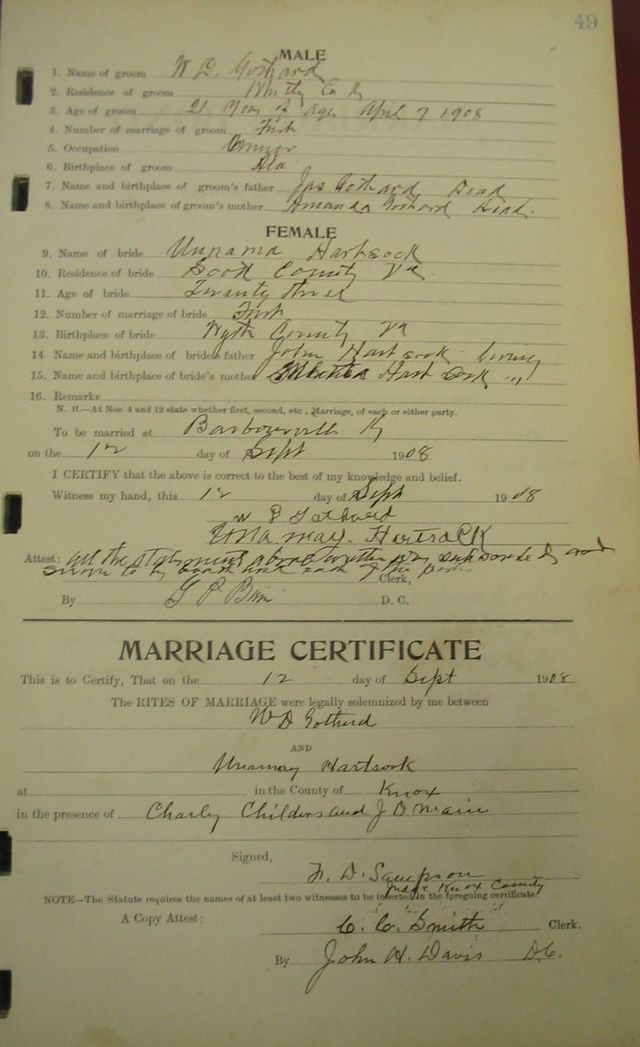 49
MALE
1. Name of groom W D. Gothard
2. Residence of groom Whitly Co Ky
3. Age of groom 21 Years of Age April 7 1908
4. Number of marriage of groom First
5. Occupation
6. Birthplace of groom Ala
7. Name and birthplace of groom's father Jas Gothard Dead
8. Name and birthplace of groom's mother Amanda Gothard Dead.
FEMALE
9. Name of bride Unnama Hartsock
10. Residence of bride Scott County Va
11. Age of bride Twenty three
12. Number of marriage of bride First
13. Birthplace of bride Wyth County Va
14 Name and birthplace of bride's father John Hartsock living
15. Name and birthplace of bride's mother Hartsock "
16. Remarks
N. B.—At Nos. 4 and 12 state whether first, second, etc., Marriage, of each or either party.
To be married at Barbourville Ky
on the 12 day of Sept 1908
I CERTIFY that the above is correct to the best of my knowledge and belief.
Witness my hand, this 12 day of Sept 1908
W D Gothard
Una may. Hartsock
Attest: all the statements above written was subscribed and
sworn to by each of the
Clerk,
By G P D. C.
MARRIAGE CERTIFICATE
This is to Certify, That on the 12 day of Sept 1908
The RITES OF MARRIAGE were legally solemnized by me between
W D Gotherd
AND
Unamay Hartsook
at in the County of Knox
in the presence of Charley Childers and J O Main
Signed,
F. D. Sampson
Judge Knox County
NOTE—The Statute requires the names of at least two witnesses to be inserted in the foregoing certificate.
A Copy Attest: C. C. Smith Clerk.
By John H. Davis D.C.